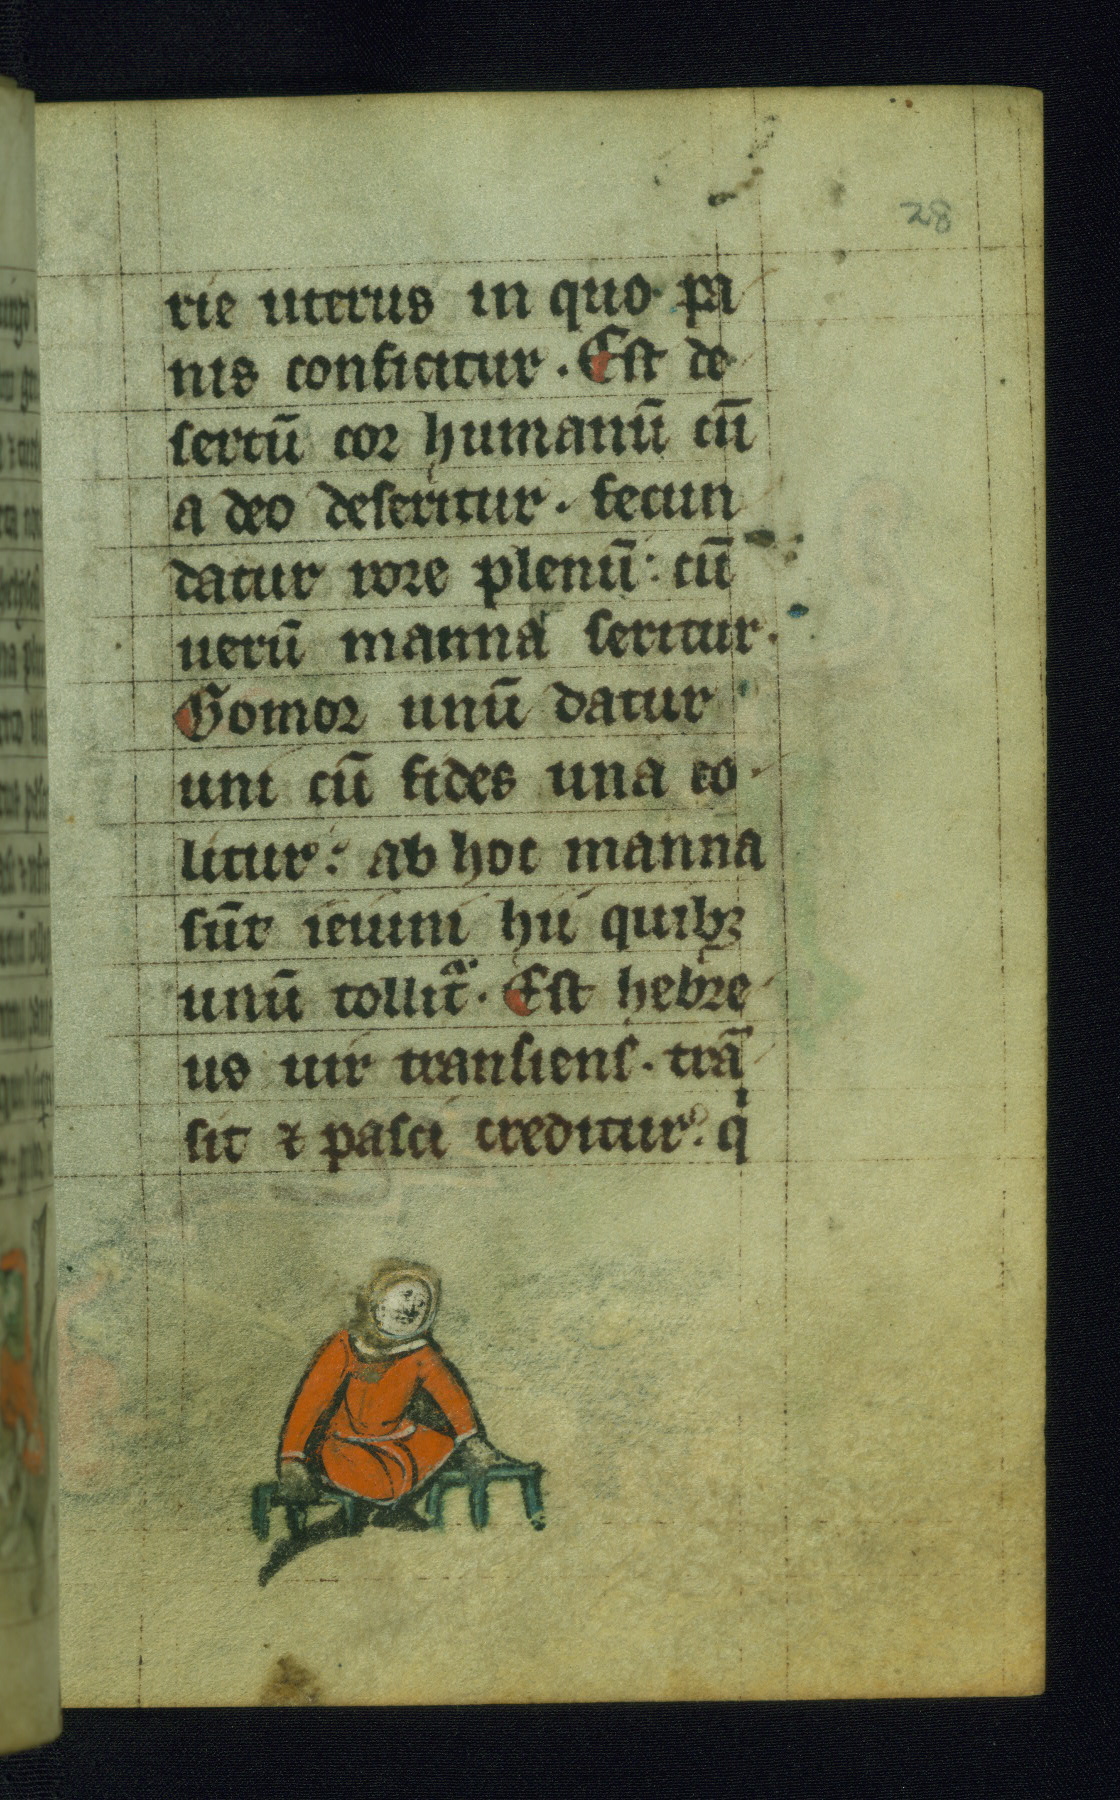 28
rie uterus in quo pa
nis conficitur. Est de
sertū cor humanū cū
a deo deseritur. fecun
datur rore plenū: cū
uerū manna seritur.
Gomor unū datur
uni cū fides una co
litur: ab hoc manna
sūt ieiuni hii quibꝫ
unū tollitᷓ. Est hebre
us uir transiens. trā
sit ⁊ pasci creditur: qͥ